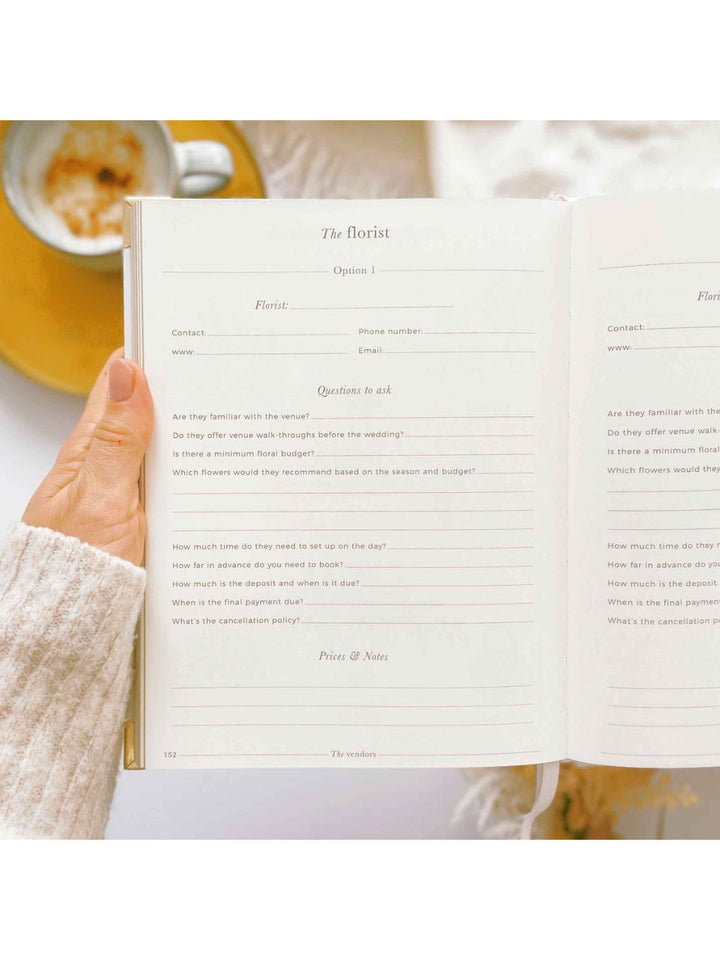 The florist
Option 1
Florist:
Contact: Phone number:
www: Email:
Questions to ask
Are they familiar with the venue?
Do they offer venue walk-throughs before the wedding?
Is there a minimum floral budget?
Which flowers would they recommend based on the season and budget?
How much time do they need to set up on the day?
How far in advance do you need to book?
How much is the deposit and when is it due?
When is the final payment due?
What's the cancellation policy?
Prices & Notes
152 The vendors
Contact:
www:
Are they familiar with the
Do they offer venue walk-
Is there a minimum floral
Which flowers would they
How much time do they
How far in advance do
How much is the deposit
When is the final payment
What's the cancellation